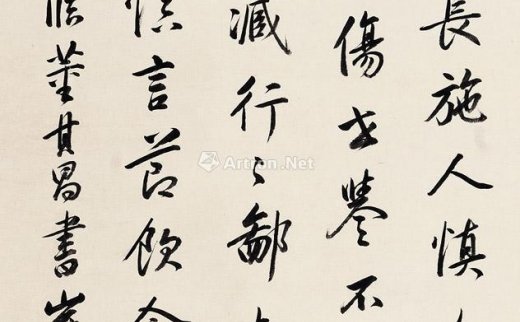 長施人慎
傷世譽不
臧行〻鄙
慎言節飲
臨董其昌書
Artron.Net